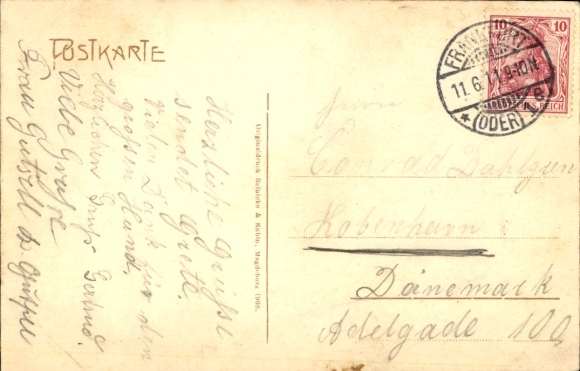 POSTKARTE
Herzliche Grüße
sendet Grete.
Vielen Dank für den
großen Hund.
Herzlichen Gruß Gertrud.
Viele Grüße
Frau
Originaldruck Reinicke & Rubin, Magdeburg 1908.
FRANKFURT
11.6.11.9-10N.
(ODER)
10 10
REICH
Herrn
Conrad Dahlgren
Kobenhavn
Dänemark
Adelgade 100